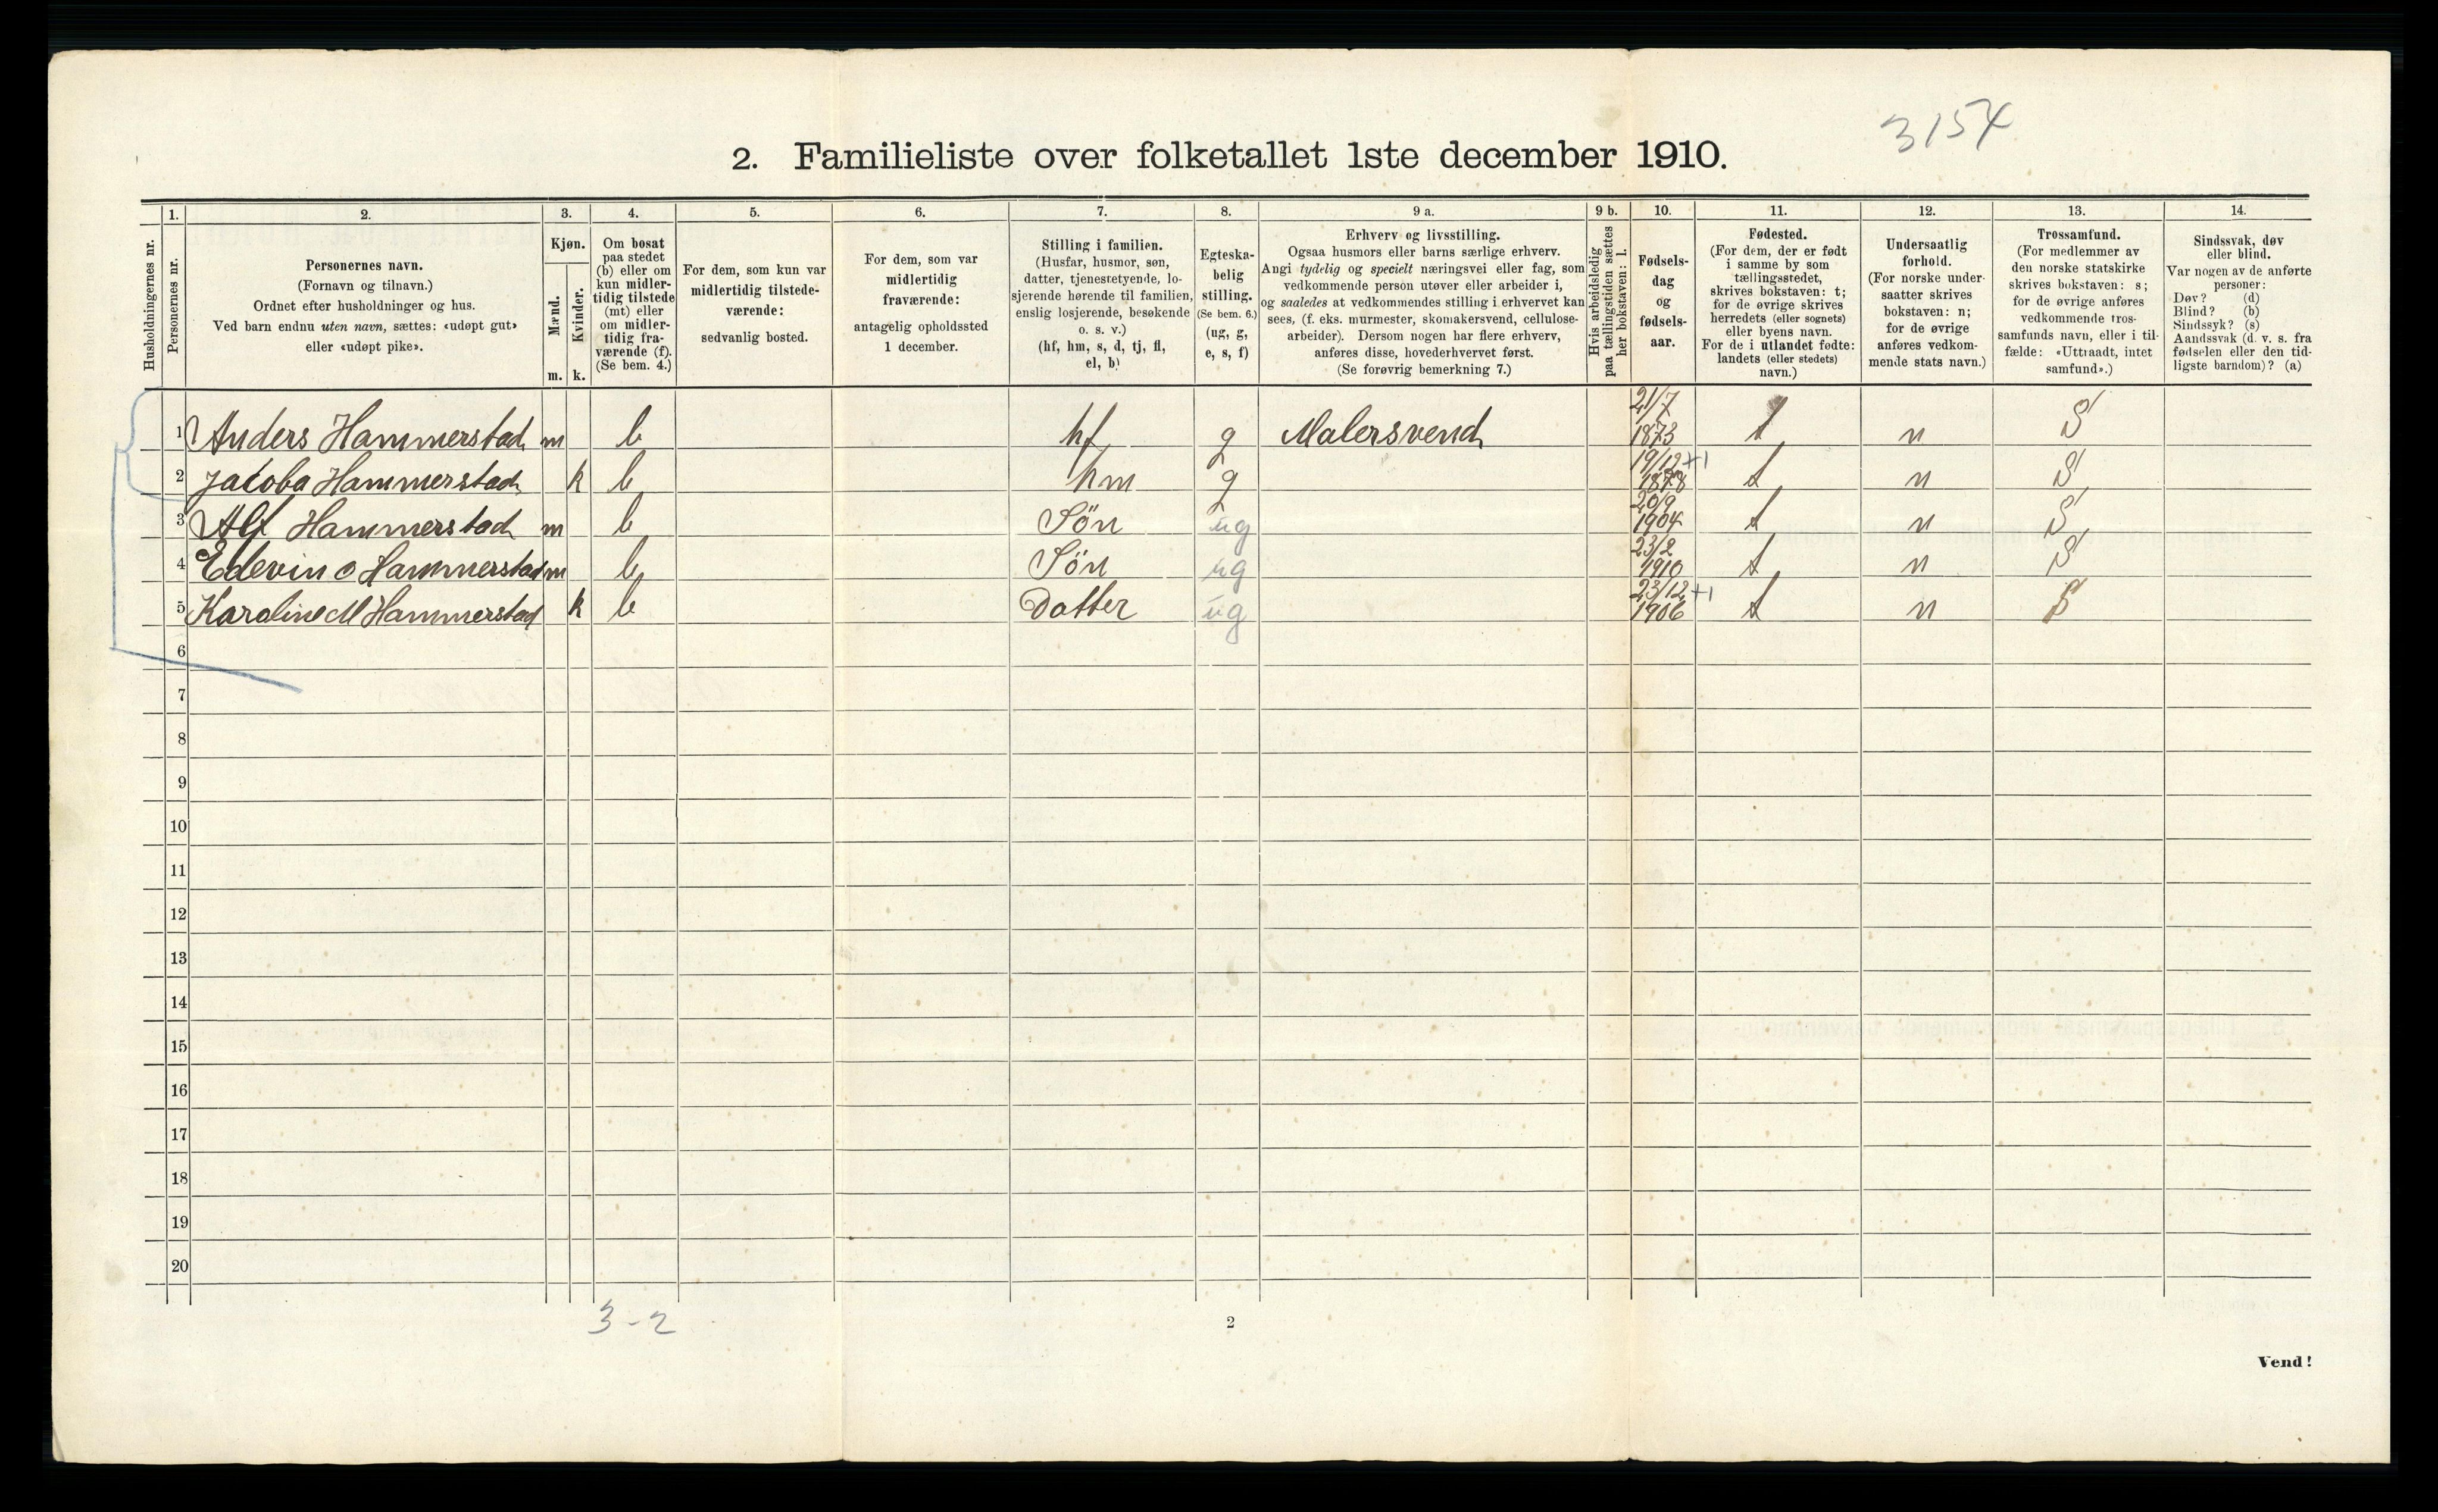 3154
2. Familieliste over folketallet 1ste december 1910.
Husholdningernes nr.
1. Personernes nr.
2. Personernes navn. (Fornavn og tilnavn.) Ordnet efter husholdninger og hus. Ved barn endnu uten navn, sættes: «udøpt gut» eller «udøpt pike».
3. Kjøn. Mænd. m. Kvinder. k.
4. Om bosat paa stedet (b) eller om kun midlertidig tilstede (mt) eller om midlertidig fraværende (f). (Se bem. 4.)
5. For dem, som kun var midlertidig tilstedeværende: sedvanlig bosted.
6. For dem, som var midlertidig fraværende: antagelig opholdssted 1 december.
7. Stilling i familien. (Husfar, husmor, søn, datter, tjenestetyende, losjerende hørende til familien, enslig losjerende, besøkende o. s. v.) (hf, hm, s, d, tj, fl, el, b)
8. Egteskabelig stilling. (Se bem. 6.) (ug, g, e, s, f)
9 a. Erhverv og livsstilling. Ogsaa husmors eller barns særlige erhverv. Angi tydelig og specielt næringsvei eller fag, som vedkommende person utøver eller arbeider i, og saaledes at vedkommendes stilling i erhvervet kan sees, (f. eks. murmester, skomakersvend, cellulosearbeider). Dersom nogen har flere erhverv, anføres disse, hovederhvervet først. (Se forøvrig bemerkning 7.)
9 b. Hvis arbeidsledig paa tællingstiden sættes her bokstaven: l.
10. Fødselsdag og fødselsaar.
11. Fødested. (For dem, der er født i samme by som tællingsstedet, skrives bokstaven: t; for de øvrige skrives herredets (eller sognets) eller byens navn. For de i utlandet fødte: landets (eller stedets) navn.)
12. Undersaatlig forhold. (For norske undersaatter skrives bokstaven: n; for de øvrige anføres vedkommende stats navn.)
13. Trossamfund. (For medlemmer av den norske statskirke skrives bokstaven: s; for de øvrige anføres vedkommende trossamfunds navn, eller i tilfælde: «Uttraadt, intet samfund».)
14. Sindssvak, døv eller blind. Var nogen av de anførte personer: Døv? (d) Blind? (b) Sindssyk? (s) Aandssvak (d. v. s. fra fødselen eller den tidligste barndom)? (a)
1 Anders Hammerstad m b hf g Malersvend 21/7 1873 t n S
2 Jacoba Hammerstad k b hm g 19/12 +1 1878 t n S
3 Alf Hammerstad m b Sön ug 20/9 1904 t n S
4 Edevin O Hammerstad m b Sön ug 23/2 1910 t n S
5 Karoline M Hammerstad k b Datter ug 23/12 +1 1906 t n S
6
7
8
9
10
11
12
13
14
15
16
17
18
19
20
3-2
2
Vend!